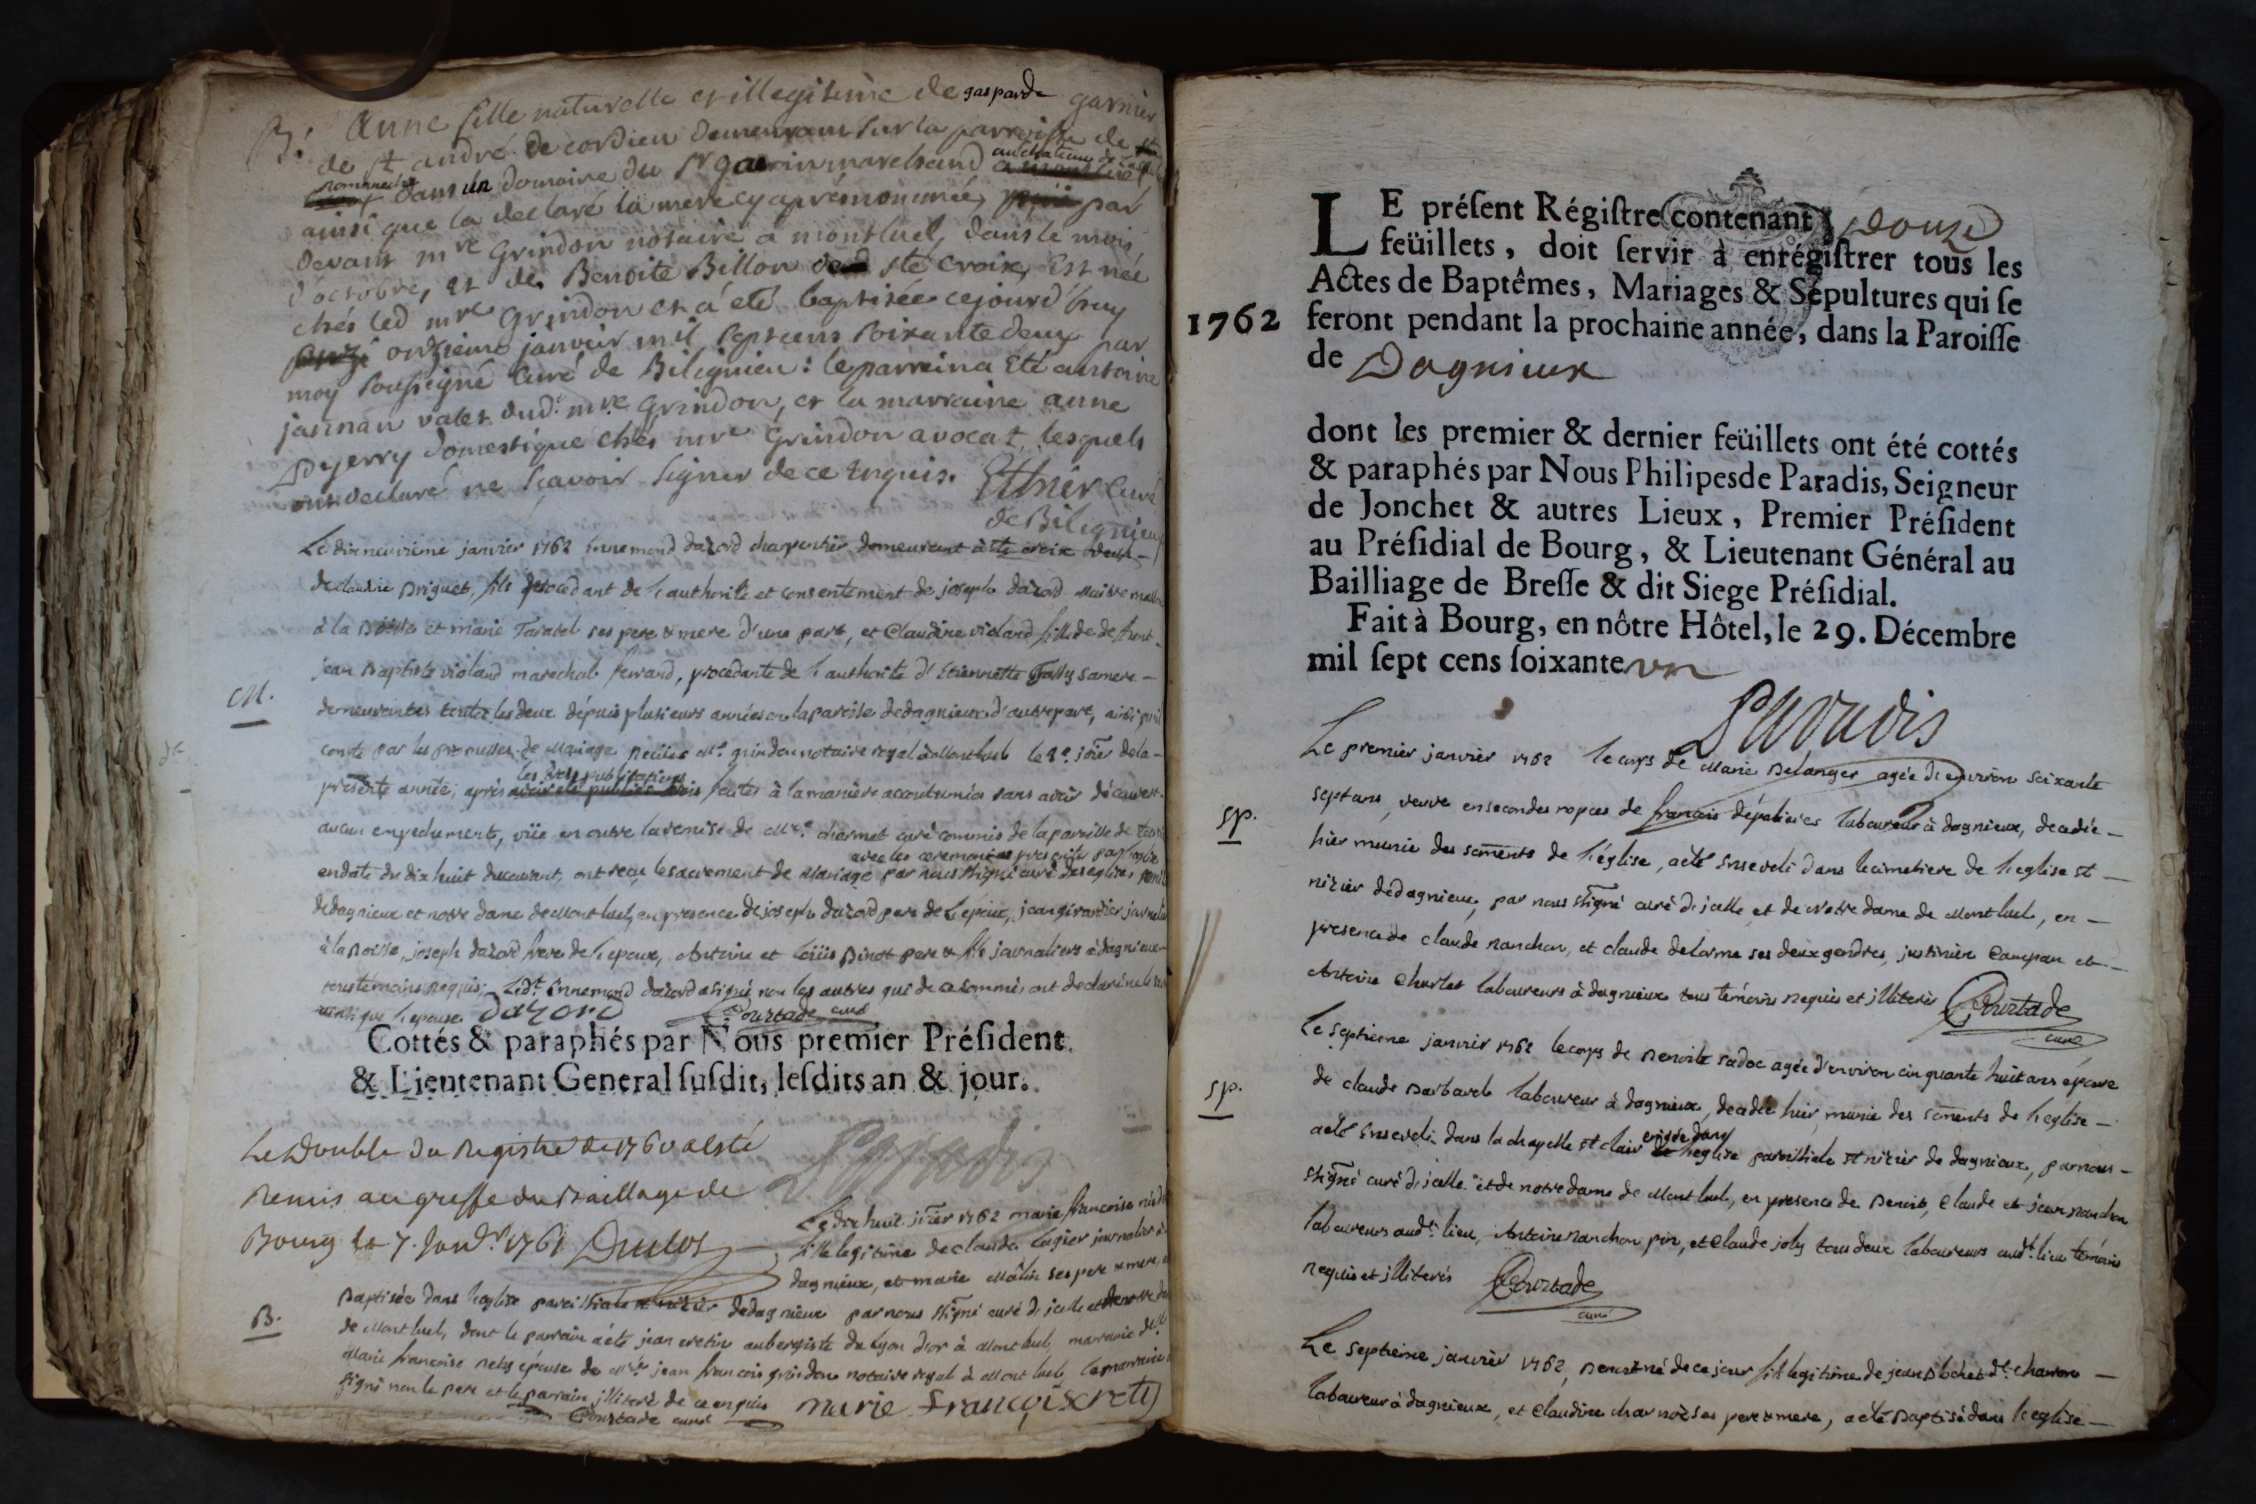 B. Anne fille naturelle et illegitime de gasparde garnier
de St andré de cordieu demeurant sur la parroisse de
romaneche dans un domaine du Sr guerin marchand au chateau de
ainsi que la declaré la mere cy apres nommée, par
devant mre Grindon notaire a montluel, dans le mois
d'octobre, et de Benoite Billon de ste croix, Est née
chés led mre Grindon et a eté baptisée cejourd'huy
onzieme janvier mil septcens soixante deux par
moy soussigné Curé de Bilignieu : le parrein a Eté antoine
jannan valet dud. mre Grindon, et la marraine anne
Deyerry domestique chés mre Grindon avocat, lesquels
ont declaré ne sçavoir signer de ce Enquis. Ethnier Curé
de Bilignieux
M.
Le dixneuvieme janvier 1762 Ennemond dazord charpentier demeurant à ste croix veuf
de claudine Briguet, fils procedant de l'authorité et consentement de joseph dazord
à la Boisse et marie Taratel ses pere & mere d'une part, et Claudine violand fille de defunt
jean Baptiste violand marechal ferrand, procedante de l'authorité d'Etiennette Gally sa mere
demeurantes toutes les deux dépuis plusieurs années en la paroisse de dagnieux d'autre part, ainsi qu'il
conste par les promesses de Mariage reçües Me grindon notaire royal à Montluel le 2e jvier de la
presente année, après les trois publications faites à la manière accoutumée sans avoir découvert
aucun empechement, vüe en outre la remise de Mre charmet curé commis de la paroisse de
en date du dix huit du courant, ont reçu le sacrement de Mariage avec les ceremonies prescrites par l'eglise par nous ssigné curé des eglises
de dagnieux et notre dame de Montluel, en presence de joseph dazord pere de l'epoux, jean girardier journalier
à la Boisse, joseph dazord frere de l'epoux, Antoine et Loüis Binot pere & fils journaliers à dagnieux
tous temoins requis. Ledt. Ennemond dazord a signé non les autres qui de ce sommés ont declaré ne le
ainsi que l'epouse. Dazord Courtade curé
Cottés & paraphés par Nous premier Président
& Lieutenant General susdit, lesdits an & jour.
Le Double du Registre de 1760 a esté
Remis au greffe du Baillage de
Bourg le 7. Janvr 1761 Duclos
Paradis
B.
Le dix huit jvier 1762 marie francoise née
fille legitime de claude Lugier journalier à
dagnieux, et marie Mâlin ses pere & mere, a
Baptisée dans l'eglise paroissiale st nizier de dagnieux par nous ssigné curé d'icelle et de notre dame
de Montluel, dont le parrain a été jean cretin aubergiste du Lyon d'or à Montluel, marraine dlle
Marie francoise rety épouse de Mre jean francois grindon notaire royal à Montluel, la marraine a
signé non le pere et le parrain illiteré de ce enquis Marie Françoise rety
Courtade curé
LE présent Régistre contenant douze
feüillets, doit servir à enrégistrer tous les
Actes de Baptêmes, Mariages & Sépultures qui se
1762 feront pendant la prochaine année, dans la Paroisse
de Dagnieux
dont les premier & dernier feüillets ont été cottés
& paraphés par Nous Philipes de Paradis, Seigneur
de Jonchet & autres Lieux, Premier Président
au Présidial de Bourg, & Lieutenant Général au
Bailliage de Bresse & dit Siege Présidial.
Fait à Bourg, en nôtre Hôtel, le 29. Décembre
mil sept cens soixante un
Paradis
Sp.
Le premier janvier 1762 le corps de Marie Belanger agée d'environ soixante
sept ans, veuve en secondes nopces de francois laboureur à dagnieux, decedée
hier munie des sacments de l'église, a été Enseveli dans le cimetiere de l'eglise st
nizier de dagnieux, par nous ssigné curé d'icelle et de notre dame de Montluel, en
presence de claude nanchon, et claude delorme ses deux gendres, justinien Campan et
Antoine Charlet laboureurs à dagnieux tous temoins requis et illiterés Courtade
curé
Sp.
Le septieme janvier 1762 le corps de Benoite sadoc agée d'environ cinquante huit ans épouse
de claude Barbarel laboureur à dagnieux, decedée hier, munie des sacments de l'eglise
a été Enseveli dans la chapelle st clair erigée dans l'eglise paroissiale st nizier de dagnieux, par nous
ssigné curé d'icelle et de notre dame de Montluel, en presence de Benoit, Claude et jean nanchon
laboureurs audt. lieu, Antoine nanchon pere, et Claude joly tous deux laboureurs audt. lieu temoins
requis et illiterés Courtade
curé
Le septieme janvier 1762, Benoit né de ce jour fils legitime de jean Blochet dt. charron
laboureur à dagnieux, et Claudine charnoz ses pere & mere, a été Baptisé dans l'eglise